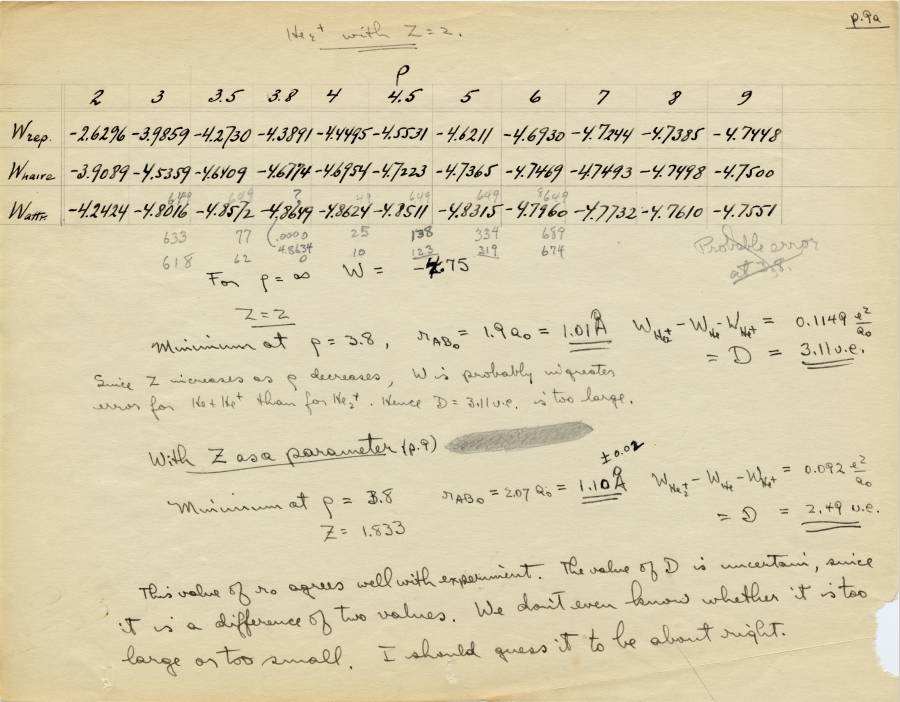 p.9a
He₂⁺ with Z=2.
ρ
2 3 3.5 3.8 4 4.5 5 6 7 8 9
Wrep. -2.6296 -3.9859 -4.2730 -4.3891 -4.4495 -4.5531 -4.6211 -4.6930 -4.7244 -4.7385 -4.7448
Wnaive -3.9089 -4.5359 -4.6409 -4.6774 -4.6954 -4.7223 -4.7365 -4.7469 -4.7493 -4.7498 -4.7500
649 649 ? 49 649 649 8649
Wattr. -4.2424 -4.8016 -4.8572 -4.8649 -4.8624 -4.8511 -4.8315 -4.7960 -4.7732 -4.7610 -4.7551
633 77 .0000 25 138 334 689
4.8634
618 62 0 10 123 319 674
Probable error
at 3.8.
For ρ = ∞ W = -4.75
Z=2
Minimum at ρ = 3.8, rAB₀ = 1.9 a₀ = 1.01 Å WHe₂⁺ - WHe - WHe⁺ = 0.1149 e²/a₀
= D = 3.11 v.e.
Since Z increases as ρ decreases, W is probably in greater
error for He + He⁺ than for He₂⁺. Hence D = 3.11 v.e. is too large.
With Z as a parameter (p.9)
± 0.02
Minimum at ρ = 3.8 rAB₀ = 2.07 a₀ = 1.10 Å WHe₂⁺ - WHe - WHe⁺ = 0.092 e²/a₀
Z = 1.833 = D = 2.49 v.e.
This value of r₀ agrees well with experiment. The value of D is uncertain, since
it is a difference of two values. We don't even know whether it is too
large or too small. I should guess it to be about right.